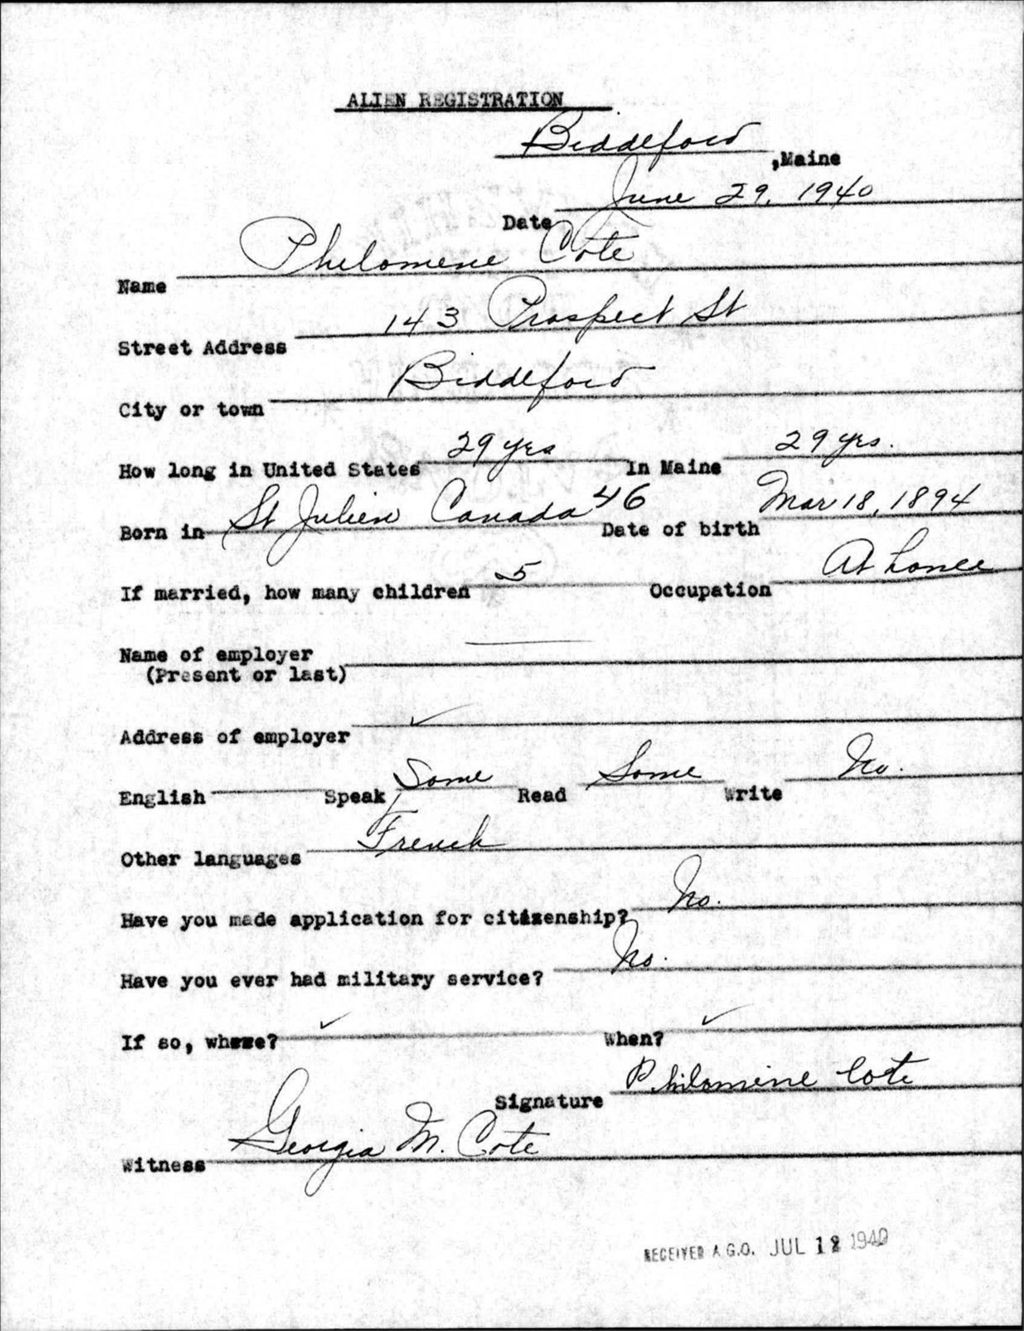 ALIEN REGISTRATION
Biddeford, Maine
Date June 29, 1940
Name Philomene Cote
Street Address 143 Prospect St
City or town Biddeford
How long in United States 29 yrs In Maine 29 yrs.
Born in St Julien Canada 46 Date of birth Mar 18, 1894
If married, how many children 5 Occupation At home
Name of employer
(Present or last)
Address of employer ✓
English Speak Some Read Some Write No.
Other languages French
Have you made application for citizenship? No.
Have you ever had military service? No.
If so, where? ✓ When? ✓
Signature Philomene Cote
Witness Georgia M. Cote
RECEIVED A.G.O. JUL 12 1940